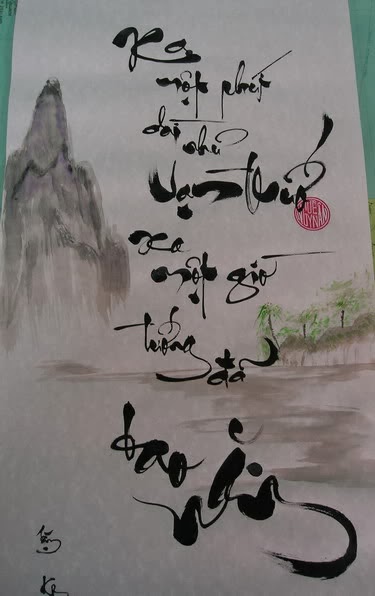 Xa
một phút
dài như
vạn thuở
Xa
một giờ
tưởng
đã
bao
năm